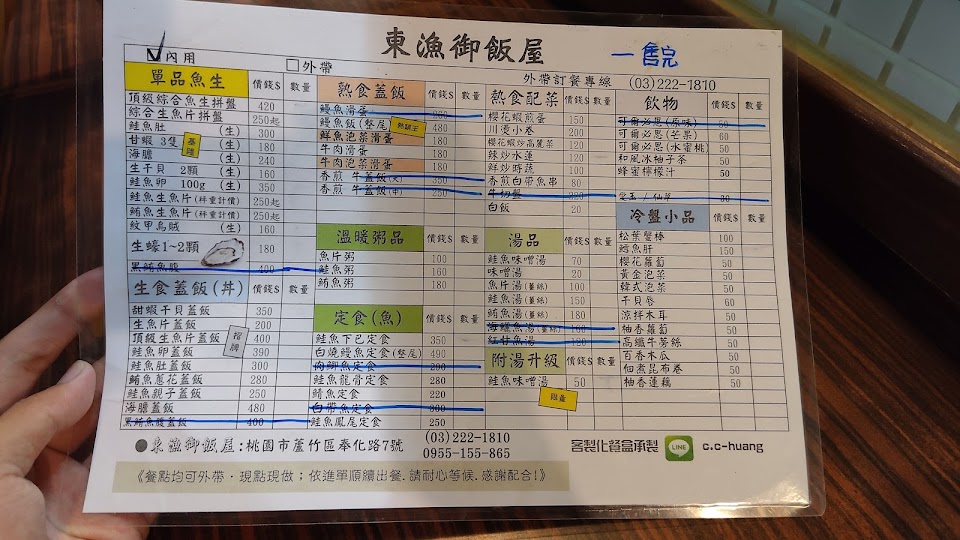 東漁御飯屋
一售完
內用
外帶
外帶訂餐專線 (03)222-1810
單品魚生 價錢$ 數量
頂級綜合魚生拼盤 420
綜合生魚片拼盤 250起
鮭魚肚 (生) 300
甘蝦 3隻 基隆 (生) 180
海膽 (生) 240
生干貝 2顆 (生) 160
鮭魚卵 100g (生) 350
鮭魚生魚片(秤重計價) 250起
鮪魚生魚片(秤重計價) 250起
紋甲烏賊 (生) 160
生蠔1~2顆 180
黑鮪魚腹 400
生食蓋飯(丼) 價錢$ 數量
甜蝦干貝蓋飯 350
生魚片蓋飯 200
頂級生魚片蓋飯 招牌 500
鮭魚卵蓋飯 390
鮭魚肚蓋飯 300
鮪魚蔥花蓋飯 280
鮭魚親子蓋飯 250
海膽蓋飯 480
黑鮪魚腹蓋飯 400
熱食蓋飯 價錢$ 數量
鰻魚滑蛋
鰻魚飯(整尾) 熱銷王 480
鮮魚泡菜滑蛋 180
牛肉滑蛋 180
牛肉泡菜滑蛋 180
香煎 牛蓋飯(大) 350
香煎 牛蓋飯 250
溫暖粥品 價錢$ 數量
魚片粥 100
鮭魚粥 160
鮪魚粥 180
定食(魚) 價錢$ 數量
鮭魚下巴定食 350
白燒鰻魚定食(整尾) 490
肉鯽魚定食
鮭魚龍骨定食 280
鯖魚定食 220
白帶魚定食 300
鮭魚鳳尾定食 250
熱食配菜 價錢$ 數量
櫻花蝦煎蛋 150
川燙小卷 200
櫻花蝦炒高麗菜 150
辣炒水蓮 120
鮮炒時蔬 100
香煎白帶魚串 80
牛切盤 220
白飯 20
湯品 價錢$ 數量
鮭魚味噌湯 70
味噌湯 20
魚片湯(薑絲) 100
鮭魚湯(薑絲) 150
鮪魚湯(薑絲) 180
海鱺魚湯(薑絲) 160
紅甘魚湯 120
附湯升級 價錢$ 數量
鮭魚味噌湯 50
限量
飲物 價錢$ 數量
可爾必思(原味) 50
可爾必思(芒果) 60
可爾必思(水蜜桃) 50
和風冰柚子茶 50
蜂蜜檸檬汁 50
/ 仙草
冷盤小品 價錢$ 數量
松葉蟹棒 100
鱈魚肝 150
櫻花蘿蔔 50
黃金泡菜 50
韓式泡菜 50
干貝唇 60
涼拌木耳 50
柚香蘿蔔 50
高纖牛蒡絲 50
百香木瓜 50
佃煮昆布卷 50
柚香蓮藕 50
●東漁御飯屋:桃園市蘆竹區奉化路7號
(03)222-1810
0955-155-865
客製化餐盒承製 LINE c.c-huang
《餐點均可外帶.現點現做;依進單順續出餐.請耐心等候.感謝配合!》